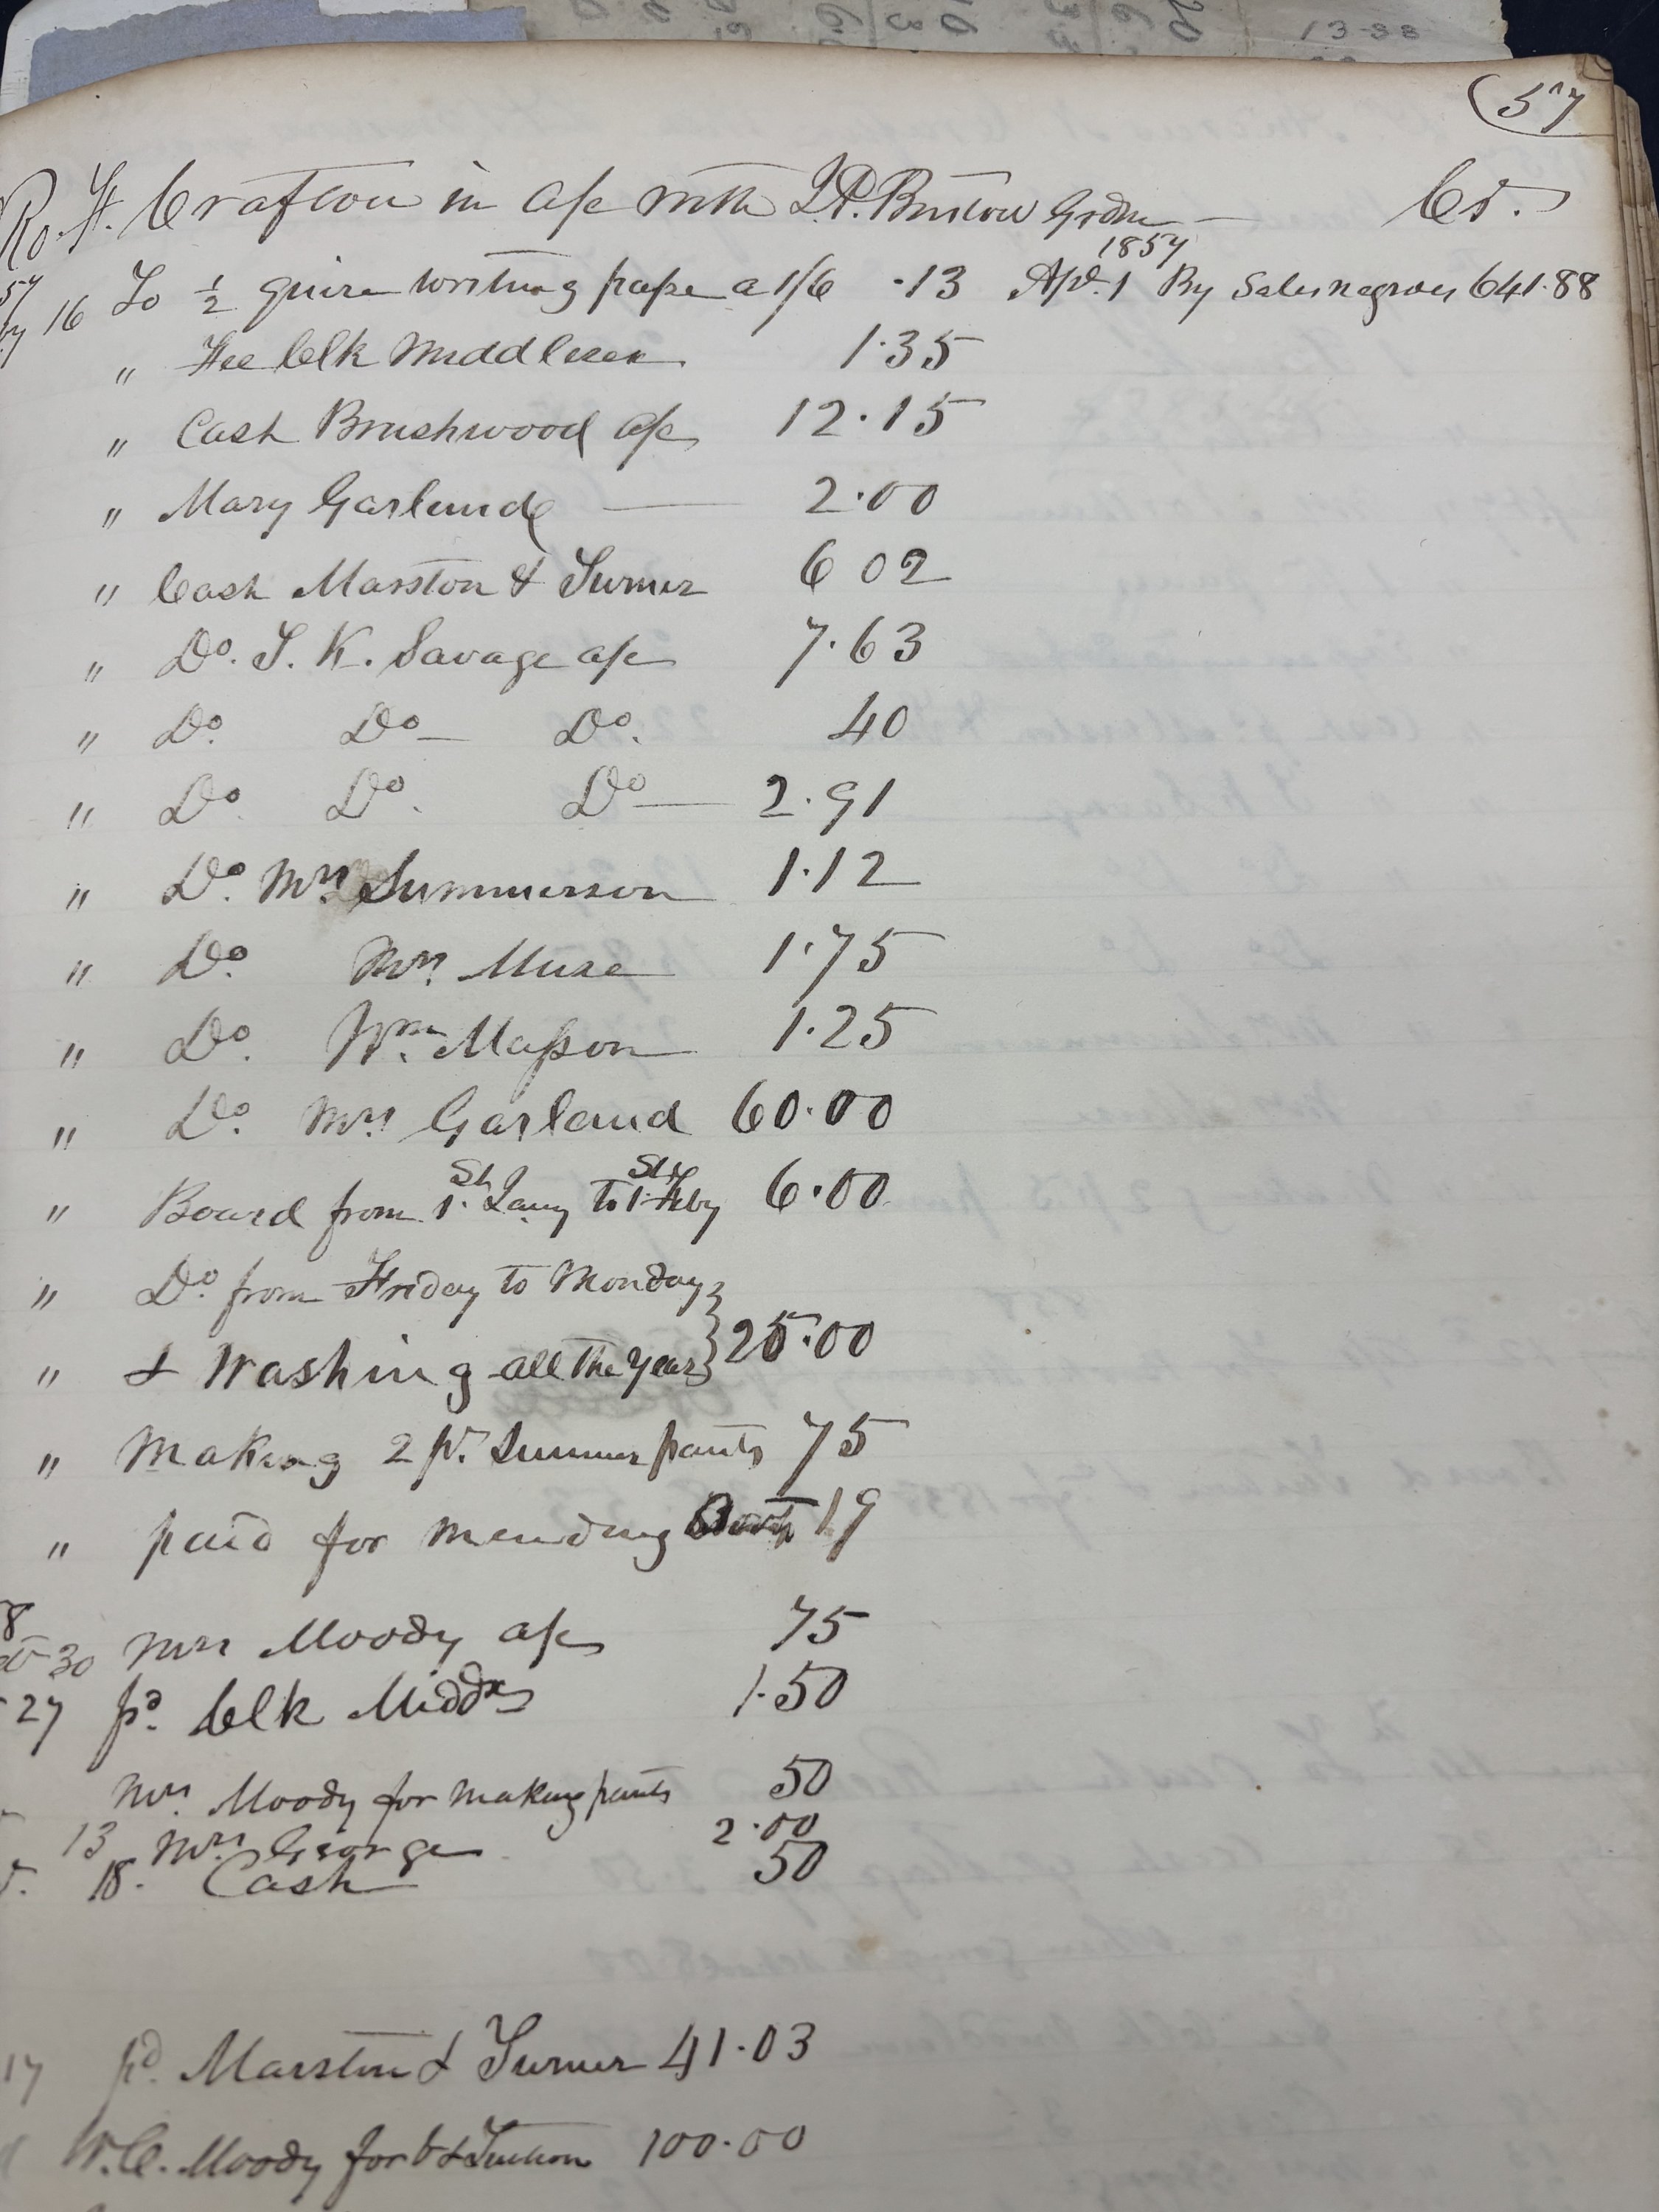 (57
Ro. H. Crafton in a/c with J.P. Bristow Grdn — Cr.
1857
57 16 To ½ quire writing paper a 1/6 .13 Apl. 1 By Sales negroes 641.88
" Fee Clk Middlesex 1.35
" Cash Brushwood a/c 12.15
" Mary Garland — 2.00
" Cash Marston & Turner 6 02
" Do. J. K. Savage a/c 7.63
" Do. Do — Do. 40
" Do Do. Do — 2.91
" Do. Mrs. Summerson 1.12
" Do. Mrs. Muse 1.75
" Do. Wm. Masson 1.25
" Do. Mrs. Garland 60.00
" Board from 1.st Jany to 1.st Feby 6.00
" Do. from Friday to Monday
" & Washing all the year 25.00
" Making 2 pr. Summer pants 75
" paid for mending Boots 19
8
30 Mrs Moody a/c 75
27 pd. Clk Middx 1.50
Mrs. Moody for making pants 50
13 Mrs. George 2.00
18. Cash 50
17 pd. Marston & Turner 41.03
W.C. Moody for b & Tuition 100.00